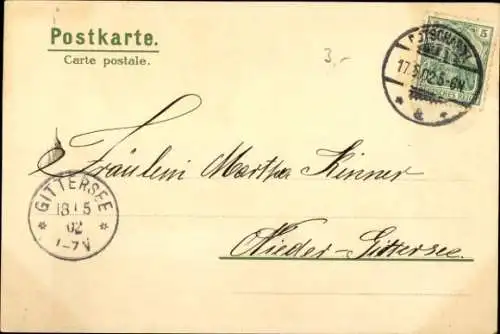 Postkarte.
Carte postale.
3,-
5
17.5.02.5-6N.
Fräulein Martha Kinner
Nieder-Gittersee.
GITTERSEE
18 5
02
1-7V